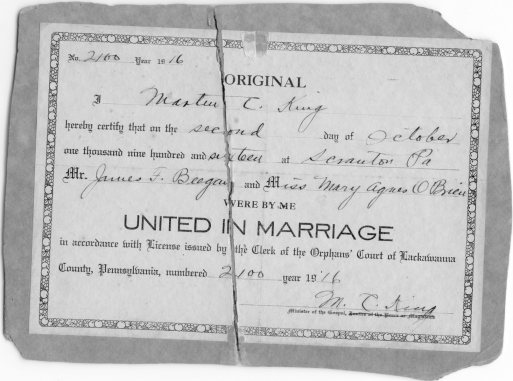 No. 2100 Year 1916
ORIGINAL
I Martin C. King
hereby certify that on the second day of October
one thousand nine hundred and sixteen at Scranton Pa
Mr. James F. Beegan and Miss Mary Agnes O'Brien
WERE BY ME
UNITED IN MARRIAGE
in accordance with License issued by the Clerk of the Orphans' Court of Lackawanna
County, Pennsylvania, numbered 2100 year 19'16
M. C. King
Minister of the Gospel, Justice of the Peace or Magistrate